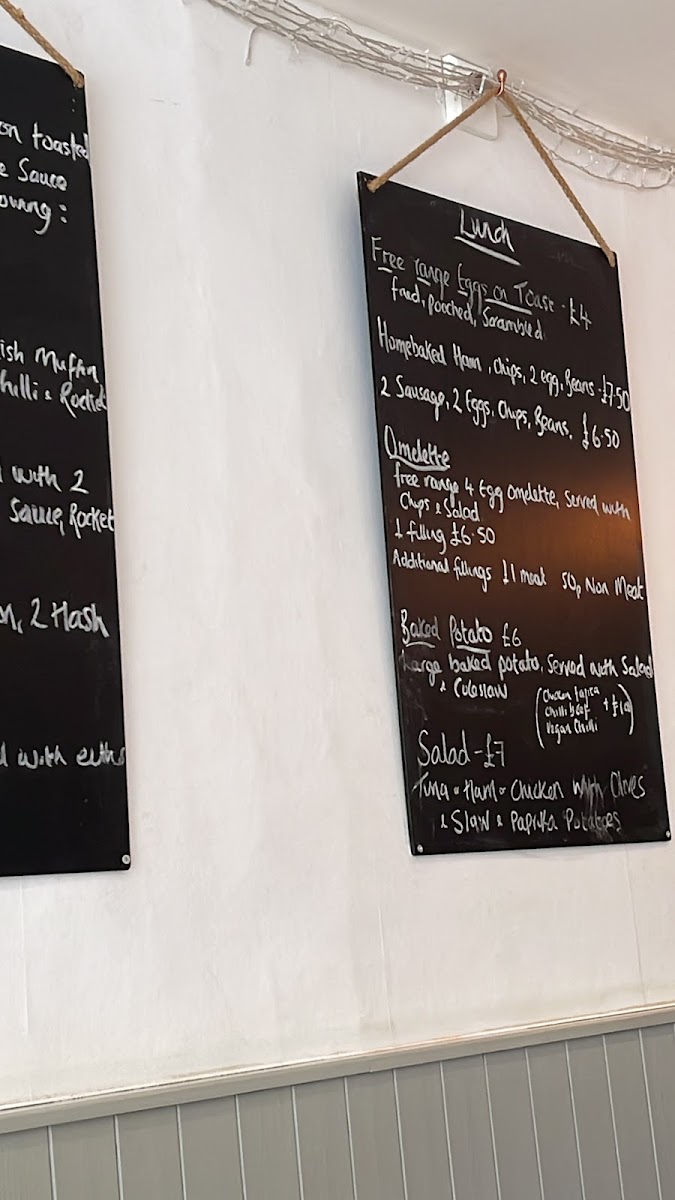 on toasted
e Sauce
owing:
ish Muffin
hilli & Rocket
with 2
Sauce, Rocket
n, 2 Hash
d with
Lunch
Free range Eggs on Toast - £4
fried, Poached, Scrambled.
Homebaked Ham, chips, 2 egg, Beans - £7.50
2 Sausage, 2 Eggs, Chips, Beans. £6.50
Omelette
free range 4 Egg omelette, Served with
Chips & Salad
1 filling £6.50
Additional fillings £1 meat 50p Non Meat
Baked Potato £6
Large baked potato, Served with Salad
& Coleslaw
(Chicken Fajita
Chilli beef
Vegan Chilli)
Salad - £7
Tuna or Ham or Chicken with Olives
& Slaw & Paprika Potatoes